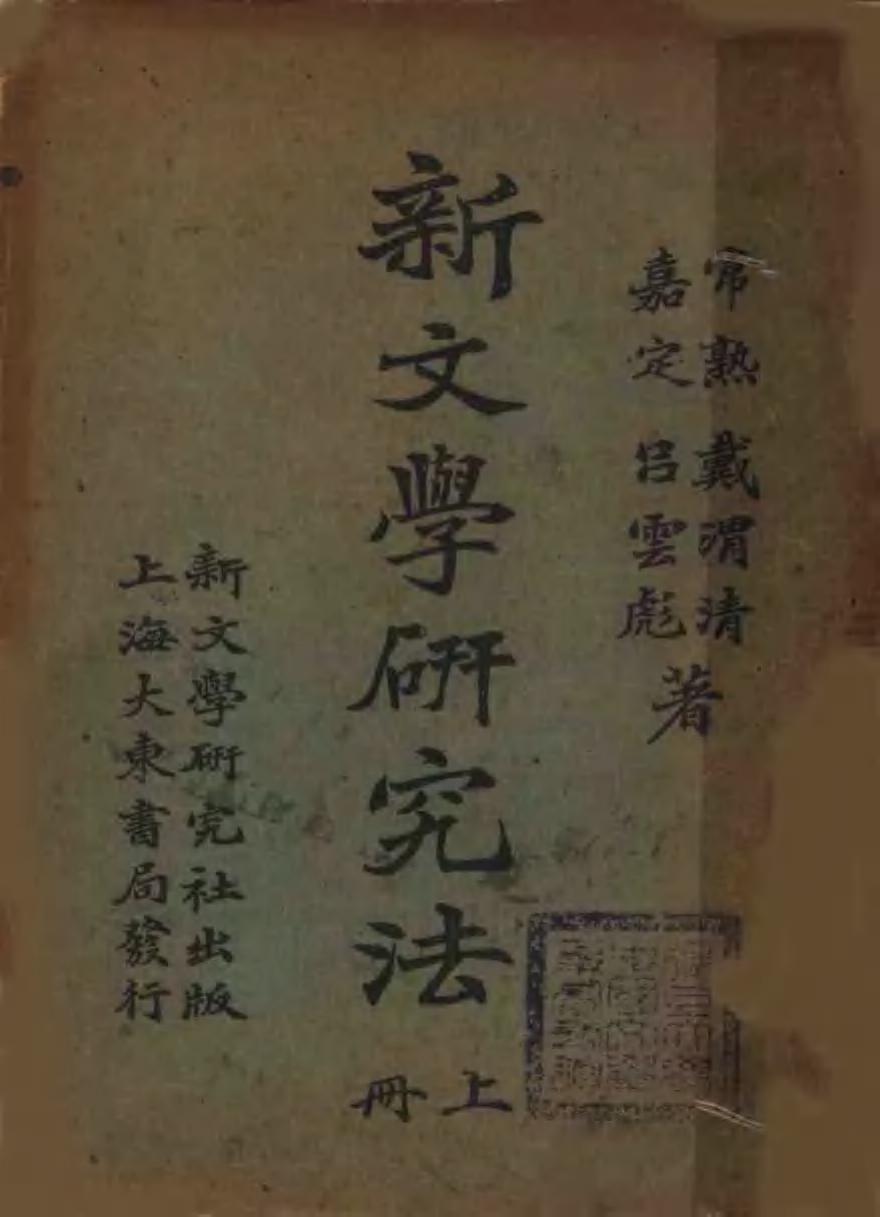 常熟戴渭清
嘉定呂雲彪
著
新文學研究法
上冊
新文學研究社出版
上海大東書局發行